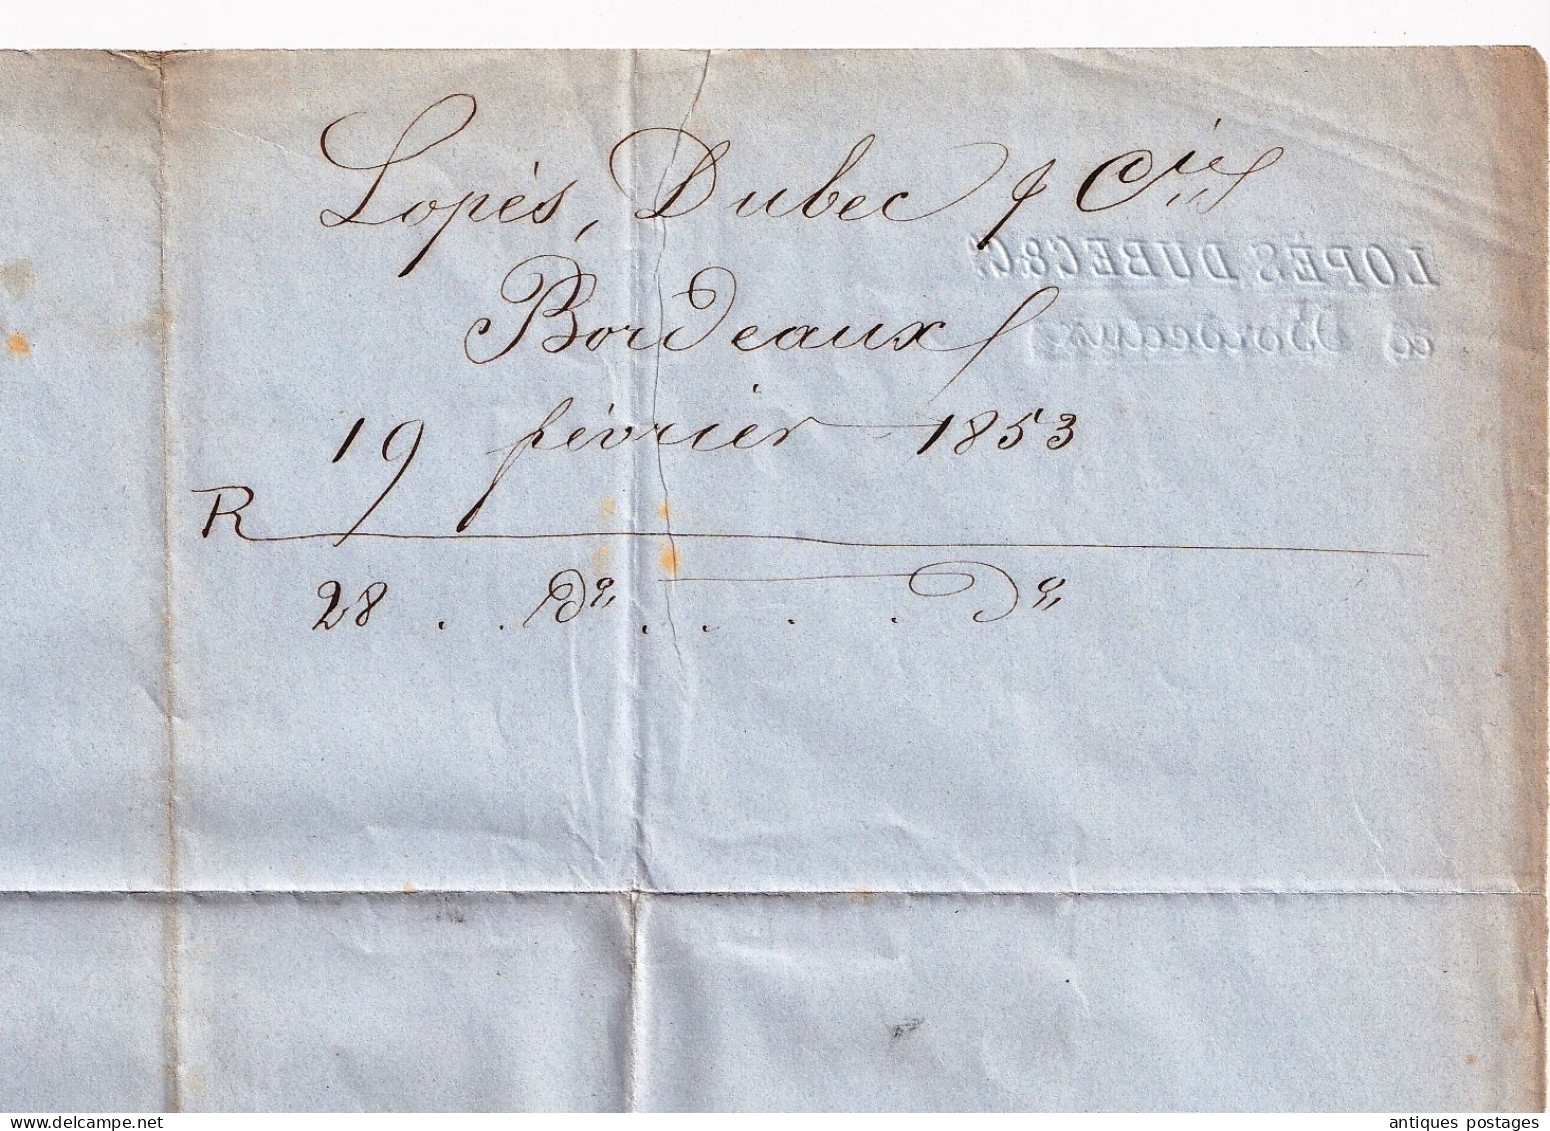 Lopès, Dubec & Cie
LOPÈS DUBEC & Cie
Bordeaux
à Bordeaux
19 février 1853
R
28 . . do . . . . do
www.delcampe.net
antiques postages